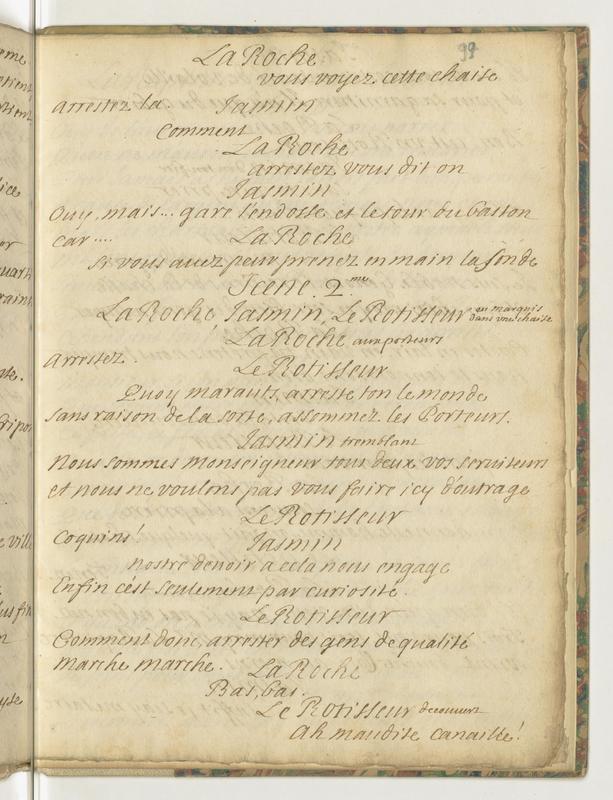 99
La Roche
vous voyez cette chaise
arrestez la Jasmin
Comment
La Roche
arrestez vous dit on
Jasmin
Ouy, mais... gare l'endosse et le tour du baston
car .... La Roche
si vous avez peur prenez en main la fonde
Scene 2.me
La Roche, Jasmin, Le Rotisseur en marquis dans une chaise
La Roche aux porteurs
arrestez.
Le Rotisseur
Quoy marauts, arreste ton le monde
sans raison de la sorte, assommez les Porteurs.
Jasmin tremblant
Nous sommes monseigneur tous deux vos serviteurs
et nous ne voulons pas vous faire icy d'outrage
Le Rotisseur
Coquins! Jasmin
nostre devoir a cela nous engage
Enfin c'est seulement par curiosité.
Le Rotisseur
Comment donc, arrester des gens de qualité
Marche marche. La Roche
Bas, bas.
Le Rotisseur decouvert
Ah maudite canaille!